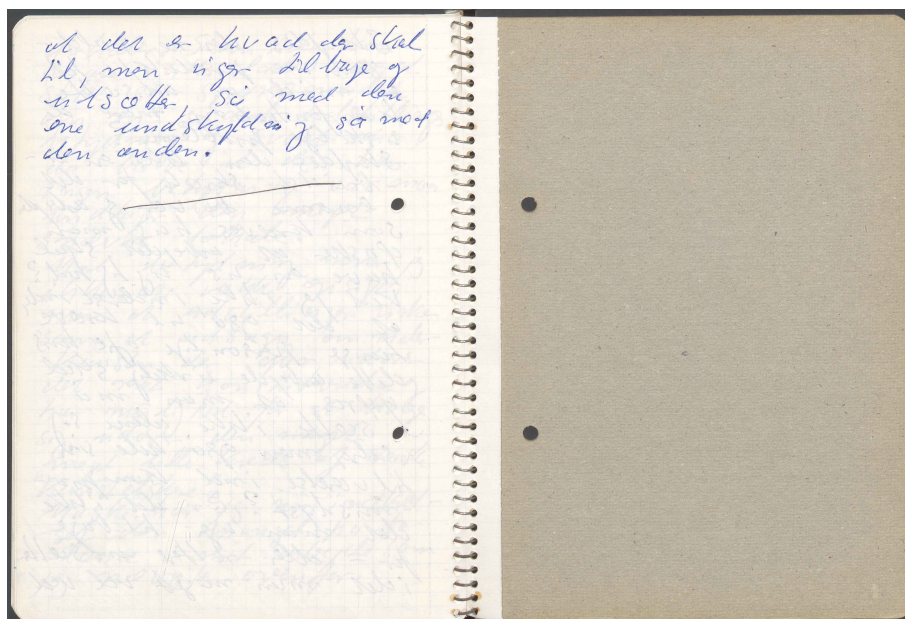 at det er hvad der skal
til, men viger tilbage og
udsætter, så med den
ene undskyldning så med
den anden.